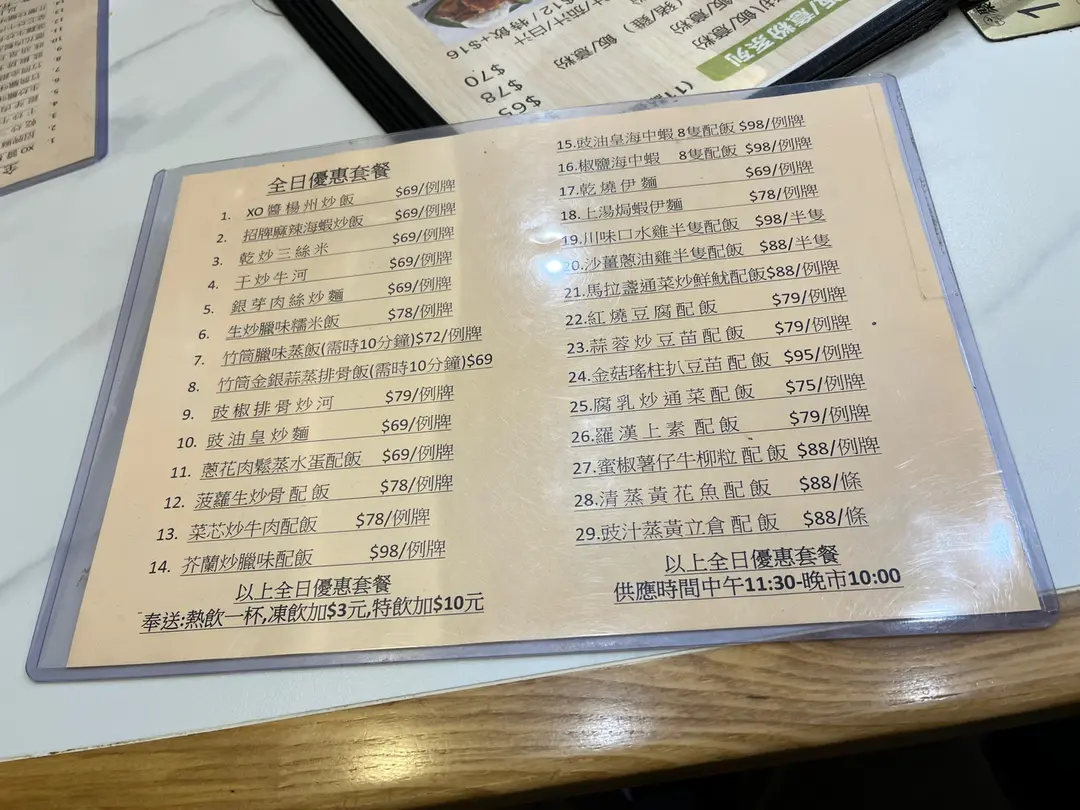 汁/茄汁/白汁
$12/特飲+$16
(豬/雞) 飯/意粉
飯/意粉系列
$70
$78
$65
全日優惠套餐
1. XO 醬楊州炒飯 $69/例牌
2. 招牌麻辣海蝦炒飯 $69/例牌
3. 乾炒三絲米 $69/例牌
4. 干炒牛河 $69/例牌
5. 銀芽肉絲炒麵 $69/例牌
6. 生炒臘味糯米飯 $78/例牌
7. 竹筒臘味蒸飯(需時10分鐘)$72/例牌
8. 竹筒金銀蒜蒸排骨飯(需時10分鐘)$69
9. 豉椒排骨炒河 $79/例牌
10. 豉油皇炒麵 $69/例牌
11. 蔥花肉鬆蒸水蛋配飯 $69/例牌
12. 菠蘿生炒骨配飯 $78/例牌
13. 菜芯炒牛肉配飯 $78/例牌
14. 芥蘭炒臘味配飯 $98/例牌
以上全日優惠套餐
奉送:熱飲一杯,凍飲加$3元,特飲加$10元
15.豉油皇海中蝦 8隻配飯 $98/例牌
16.椒鹽海中蝦 8隻配飯 $98/例牌
17.乾燒伊麵 $69/例牌
18.上湯焗蝦伊麵 $78/例牌
19.川味口水雞半隻配飯 $98/半隻
20.沙薑蔥油雞半隻配飯 $88/半隻
21.馬拉盞通菜炒鮮魷配飯$88/例牌
22.紅燒豆腐配飯 $79/例牌
23.蒜蓉炒豆苗配飯 $79/例牌
24.金菇瑤柱扒豆苗配飯 $95/例牌
25.腐乳炒通菜配飯 $75/例牌
26.羅漢上素配飯 $79/例牌
27.蜜椒薯仔牛柳粒配飯 $88/例牌
28.清蒸黃花魚配飯 $88/條
29.豉汁蒸黃立倉配飯 $88/條
以上全日優惠套餐
供應時間中午11:30-晚市10:00